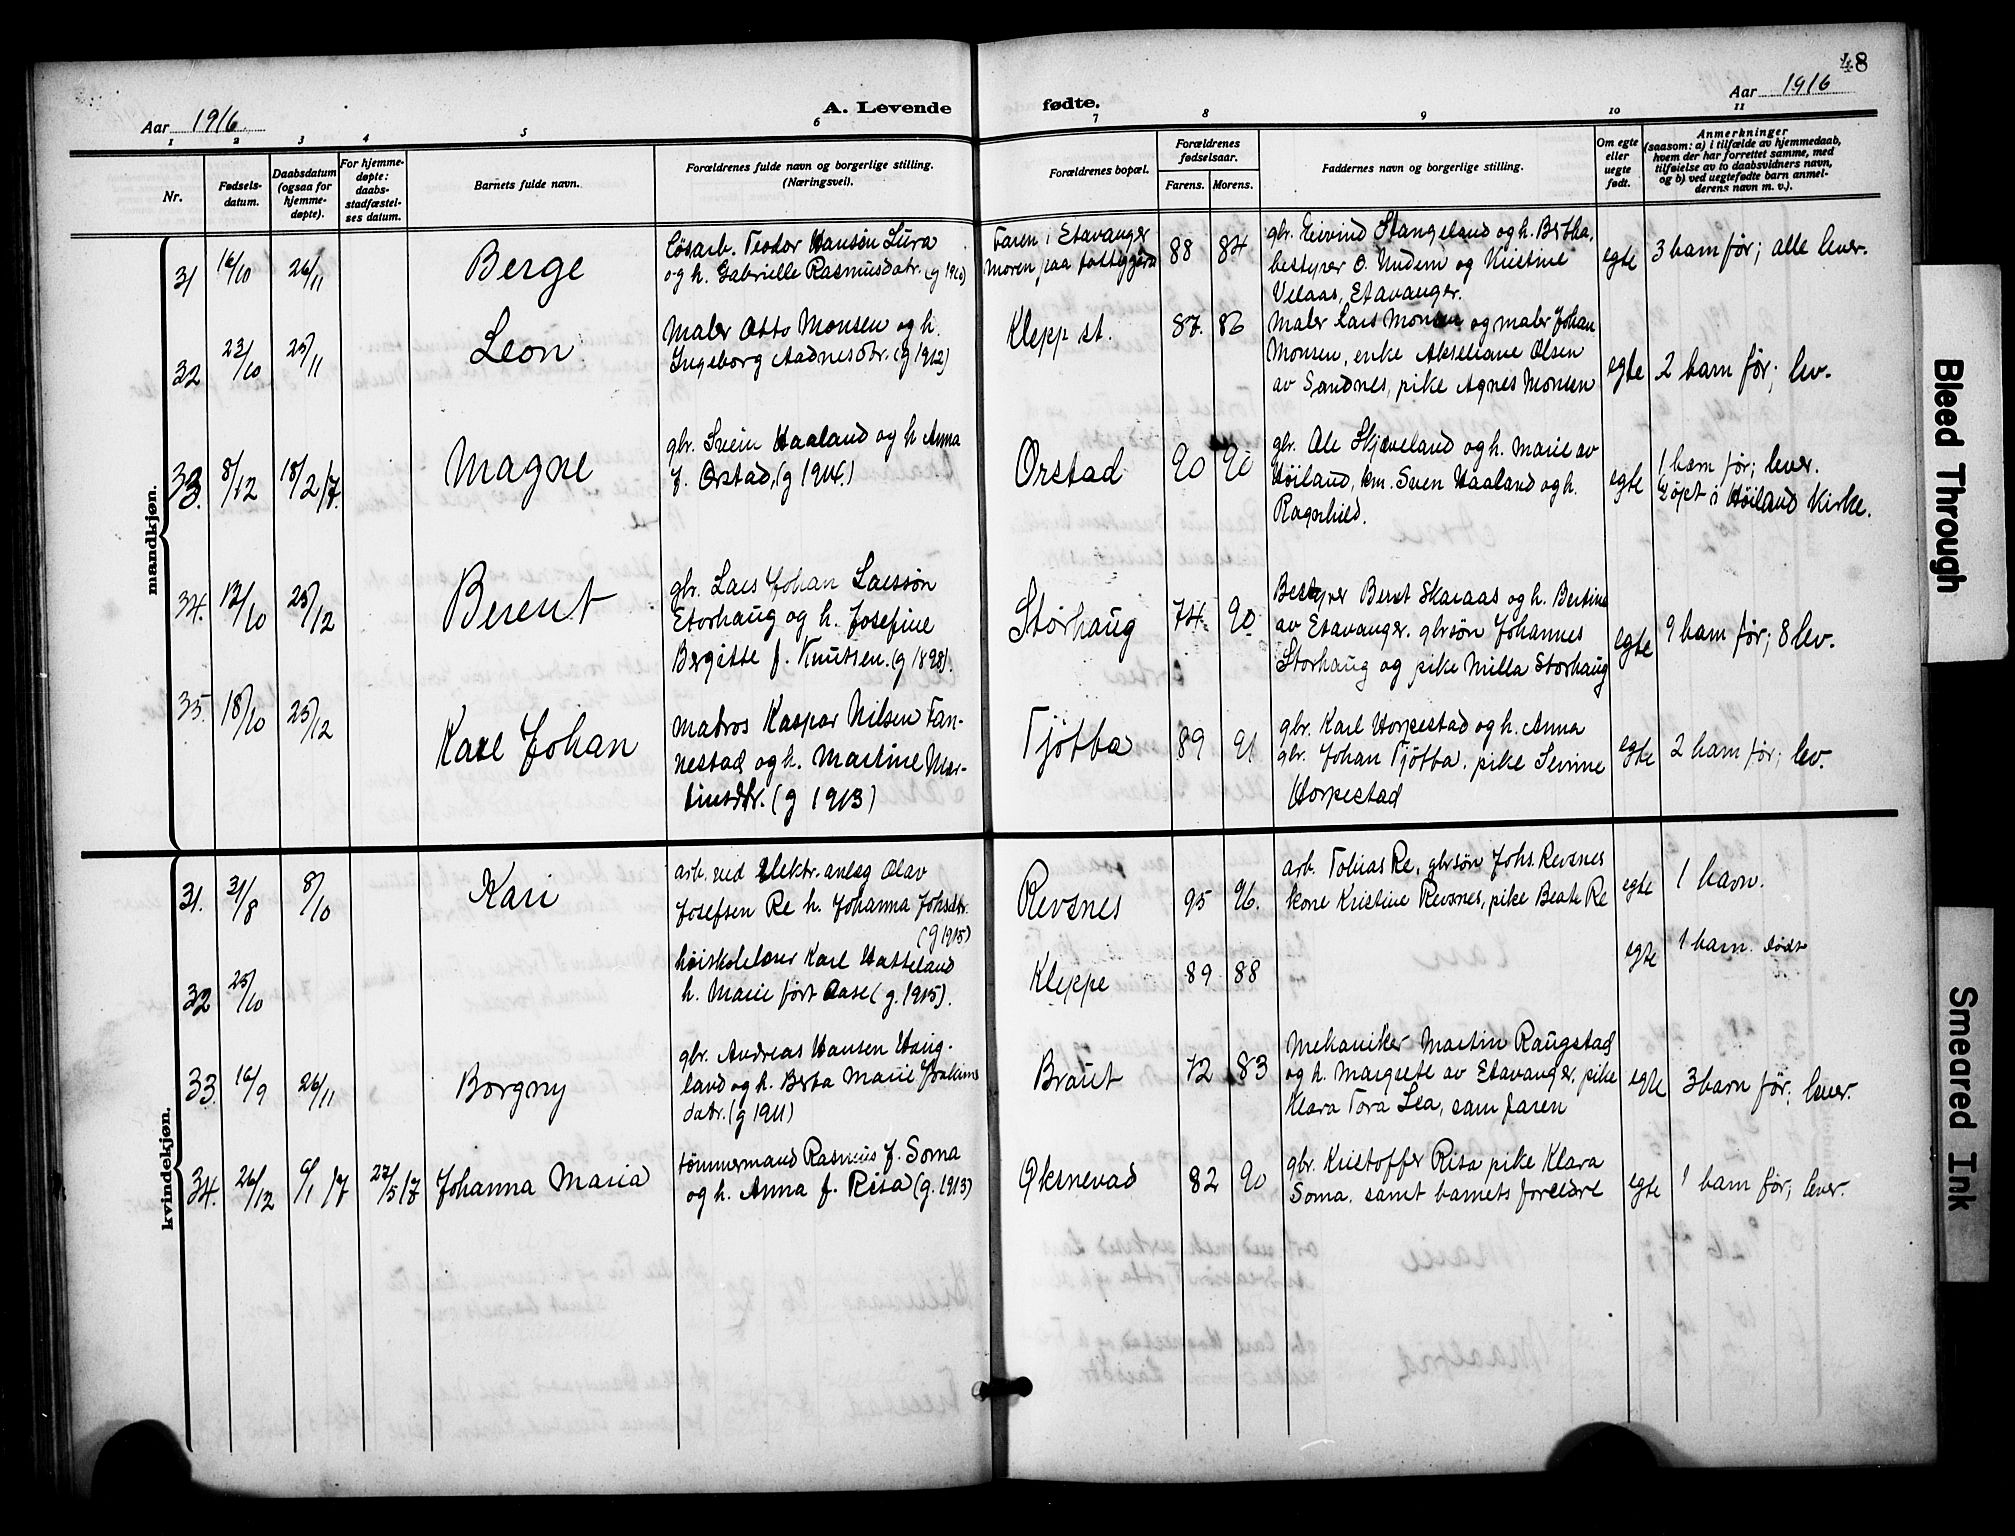 48
Aar 1916
A. Levende
fødte.
Aar 1916
1 2 3 4 5 6 7 8 9 10 11
Nr.
Fødsels-
datum.
Daabsdatum
(ogsaa for
hjemme-
døpte).
For hjemme-
døpte:
daabs-
stadfæstel-
ses datum.
Barnets fulde navn.
Forældrenes fulde navn og borgerlige stilling.
(Næringsvei).
Forældrenes bopæl.
Forældrenes
fødselsaar.
Farens. Morens.
Faddernes navn og borgerlige stilling.
Om egte
eller
uegte
født.
Anmerkninger
(saasom: a) i tilfælde av hjemmedaab,
hvem der har forrettet samme, med
tilføielse av to daabsvidners navn,
og b) ved uegtefødte barn anmel-
derens navn m. v.).
mandkjøn.
31 16/10 26/11 Berge
Løsarb. Teodor Hansøn Lura
og h. Gabrielle Rasmusdatr. (g 1910)
Faren i Stavanger
Moren paa fattiggård
88 84
gbr. Eivind Stangeland og h. Bertha,
bestyrer O. Undem og Kristine
Velaas, Stavanger.
egte
3 barn før; alle lever.
32 23/10 25/11 Leon
Maler Otto Monsen og h.
Ingeborg Aadnesdtr. (g 1912)
Klepp st.
87. 86
Maler Lars Monsen og maler Johan
Monsen, enke Akseliane Olsen
av Sandnes, pike Agnes Monsen
egte
2 barn før; lev.
33. 8/12 18/2 17. Magne
gbr. Svein Haaland og h Anna
f. Orstad, (g 1914.)
Orstad
90 90
gbr. Ole Skjæveland og h. Marie av
Høiland, km. Sven Haaland og h.
Ragnhild.
egte
1 barn før; lever.
Døpt i Høiland Kirke.
34. 12/10 25/12 Berent
gbr. Lars Johan Larssøn
Storhaug og h. Josefine
Bergitte f. Knutsen. (g 1898).
Storhaug
74. 90
Bestyrer Bernt Skaraas og h. Bertine
av Stavanger. gbrsøn Johannes
Storhaug og pike Milla Storhaug
egte
9 barn før; 8 lev.
35. 18/10 25/12 Karl Johan
Matros Kaspar Nilsen Fan-
nestad og h. Martine Mar-
tinsdtr. (g 1913)
Tjøtta
89 91
gbr. Karl Horpestad og h. Anna
gbr. Johan Tjøtta. pike Sevrine
Horpestad
egte
2 barn før; lev.
kvindekjøn.
31. 31/8 8/10 Kari
arb. ved Elektr. anlæg Olav
Josefsen Re h. Johanna Johsdtr.
(g 1915)
Revsnes
95 96.
arb. Tobias Re, gbrsøn Johs. Revsnes
kone Kristine Revsnes, pike Beate Re
egte
1 barn.
32 25/10
høiskolelærer Karl Hatteland
h. Marie født Aase (g. 1915).
Kleppe
89 88
egte
1 barn. født
33. 16/9 26/11 Borgny
gbr. Andreas Hansen Haug-
land og h. Berta Marie Joakims
datr. (g 1911)
Braut
72 83
Mekaniker Martin Raugstad
og h. Margrete av Stavanger, pike
Klara Tora Lea, sam faren
egte
3 barn før; lever.
34. 26/12 6/1 17 27/5 17 Johanna Maria
tømmermand Rasmus J. Soma
og h. Anna f. Risa (g. 1913)
Øksnevad
82 90
gbr. Kristoffer Risa pike Klara
Soma. samt barnets foreldre
egte
1 barn før; lever.
Bleed Through
Smeared Ink